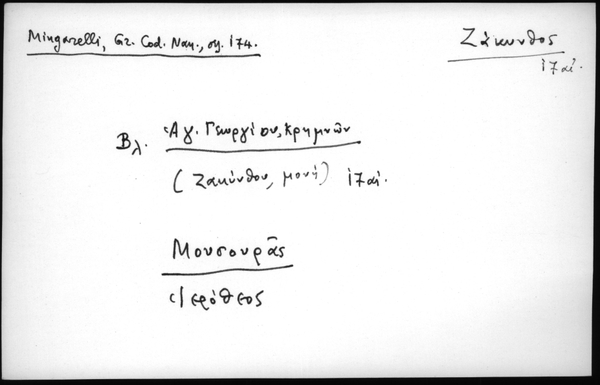 Mingarelli, Gr. Cod. Nan., σ. 174.
Ζάκυνθος
17 αἰ.
Βλ. Ἁγ. Γεωργίου, Κρημνῶν
(Ζακύνθου, μονή) 17 αἰ.
Μουσουρᾶς
Ἱερόθεος